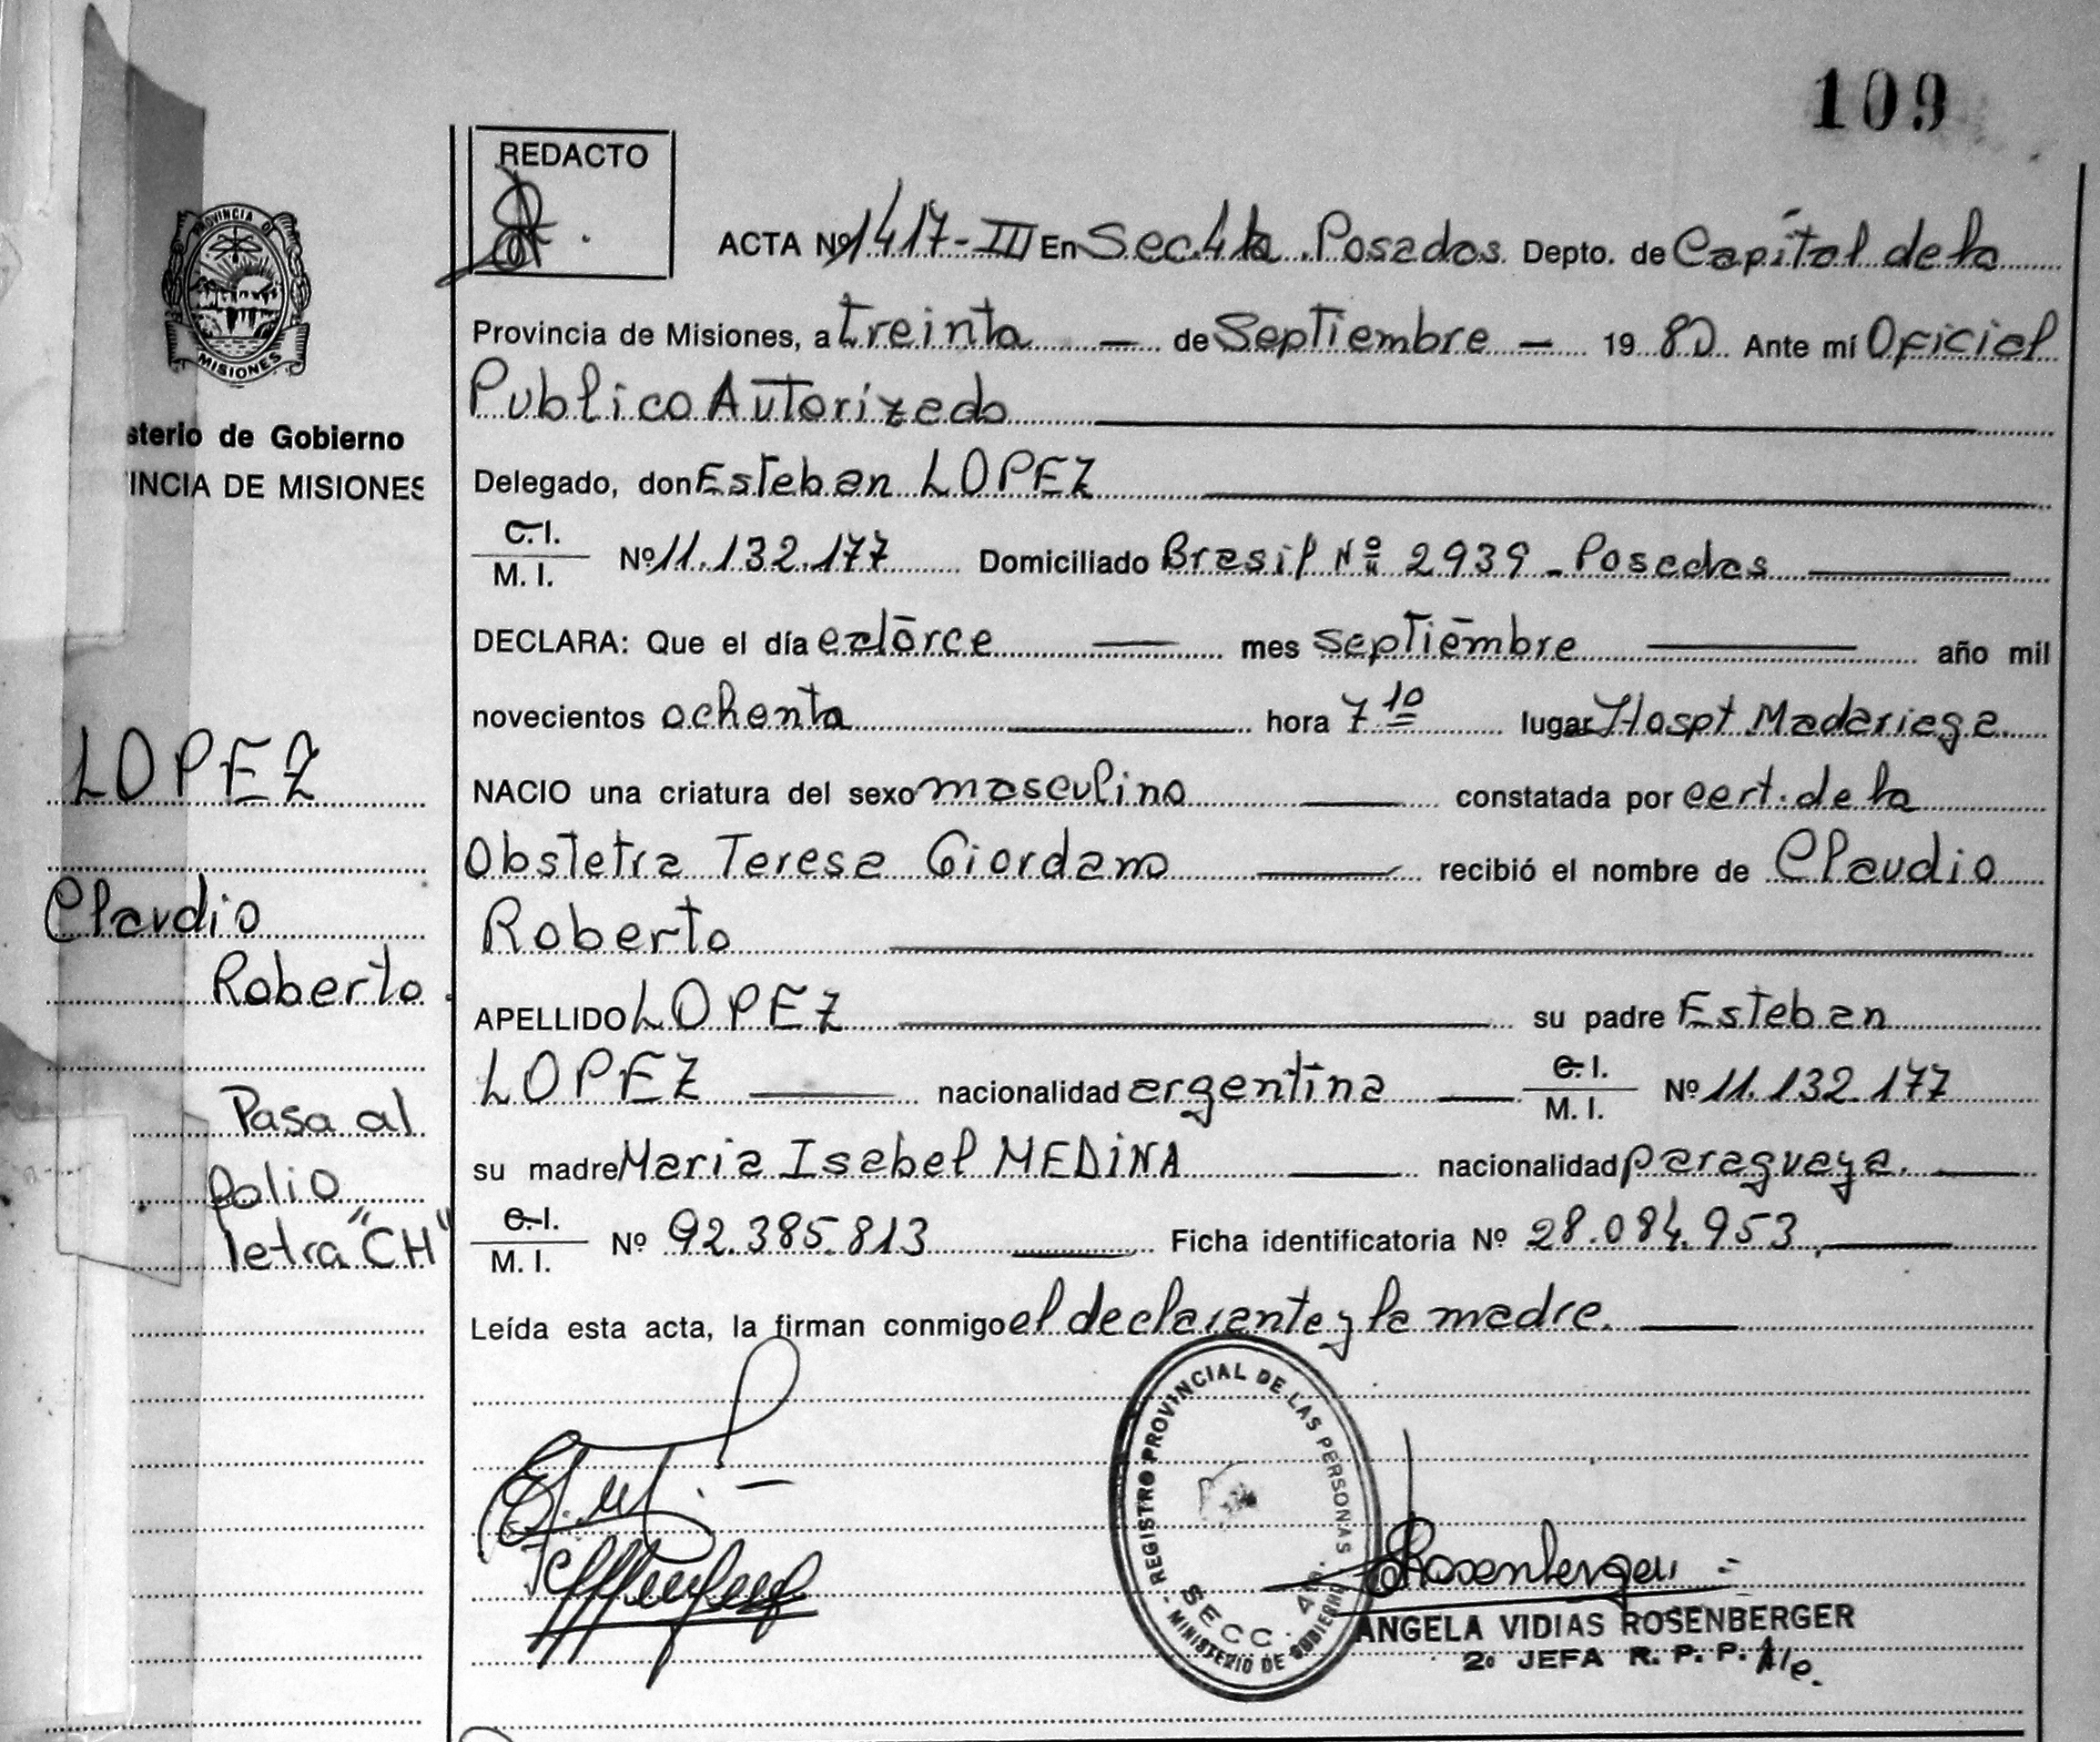 109
REDACTO
PROVINCIA DE
MISIONES
sterio de Gobierno
INCIA DE MISIONES
ACTA Nº 1417-III En Sec. 4ta Posadas Depto. de Capital de la
Provincia de Misiones, a treinta — de Septiembre — 1980 Ante mí Oficial
Publico Autorizado
Delegado, don Esteban LOPEZ
C.I.
M. I. Nº 11.132.177 Domiciliado Brasil Nº 2939 - Posadas
DECLARA: Que el día catorce — mes septiembre — año mil
novecientos ochenta — hora 7 10 lugar Hospt Madariaga
NACIO una criatura del sexo masculino — constatada por cert. de la
Obstetra Teresa Giordano — recibió el nombre de Claudio
Roberto
APELLIDO LOPEZ — su padre Esteban
LOPEZ — nacionalidad argentina — C.I.
M. I. Nº 11.132.177
su madre Maria Isabel MEDINA — nacionalidad paraguaya. —
C.I.
M. I. Nº 92.385.813 — Ficha identificatoria Nº 28.084.953. —
Leída esta acta, la firman conmigo el declarante y la madre. —
LOPEZ
Claudio
Roberto
Pasa al
folio
letra "CH"
REGISTRO PROVINCIAL DE LAS PERSONAS
- MINISTERIO DE GOBIERNO
SECC. 4ta.
Rosenberger
ANGELA VIDIAS ROSENBERGER
2ª JEFA R. P. P. A/c.